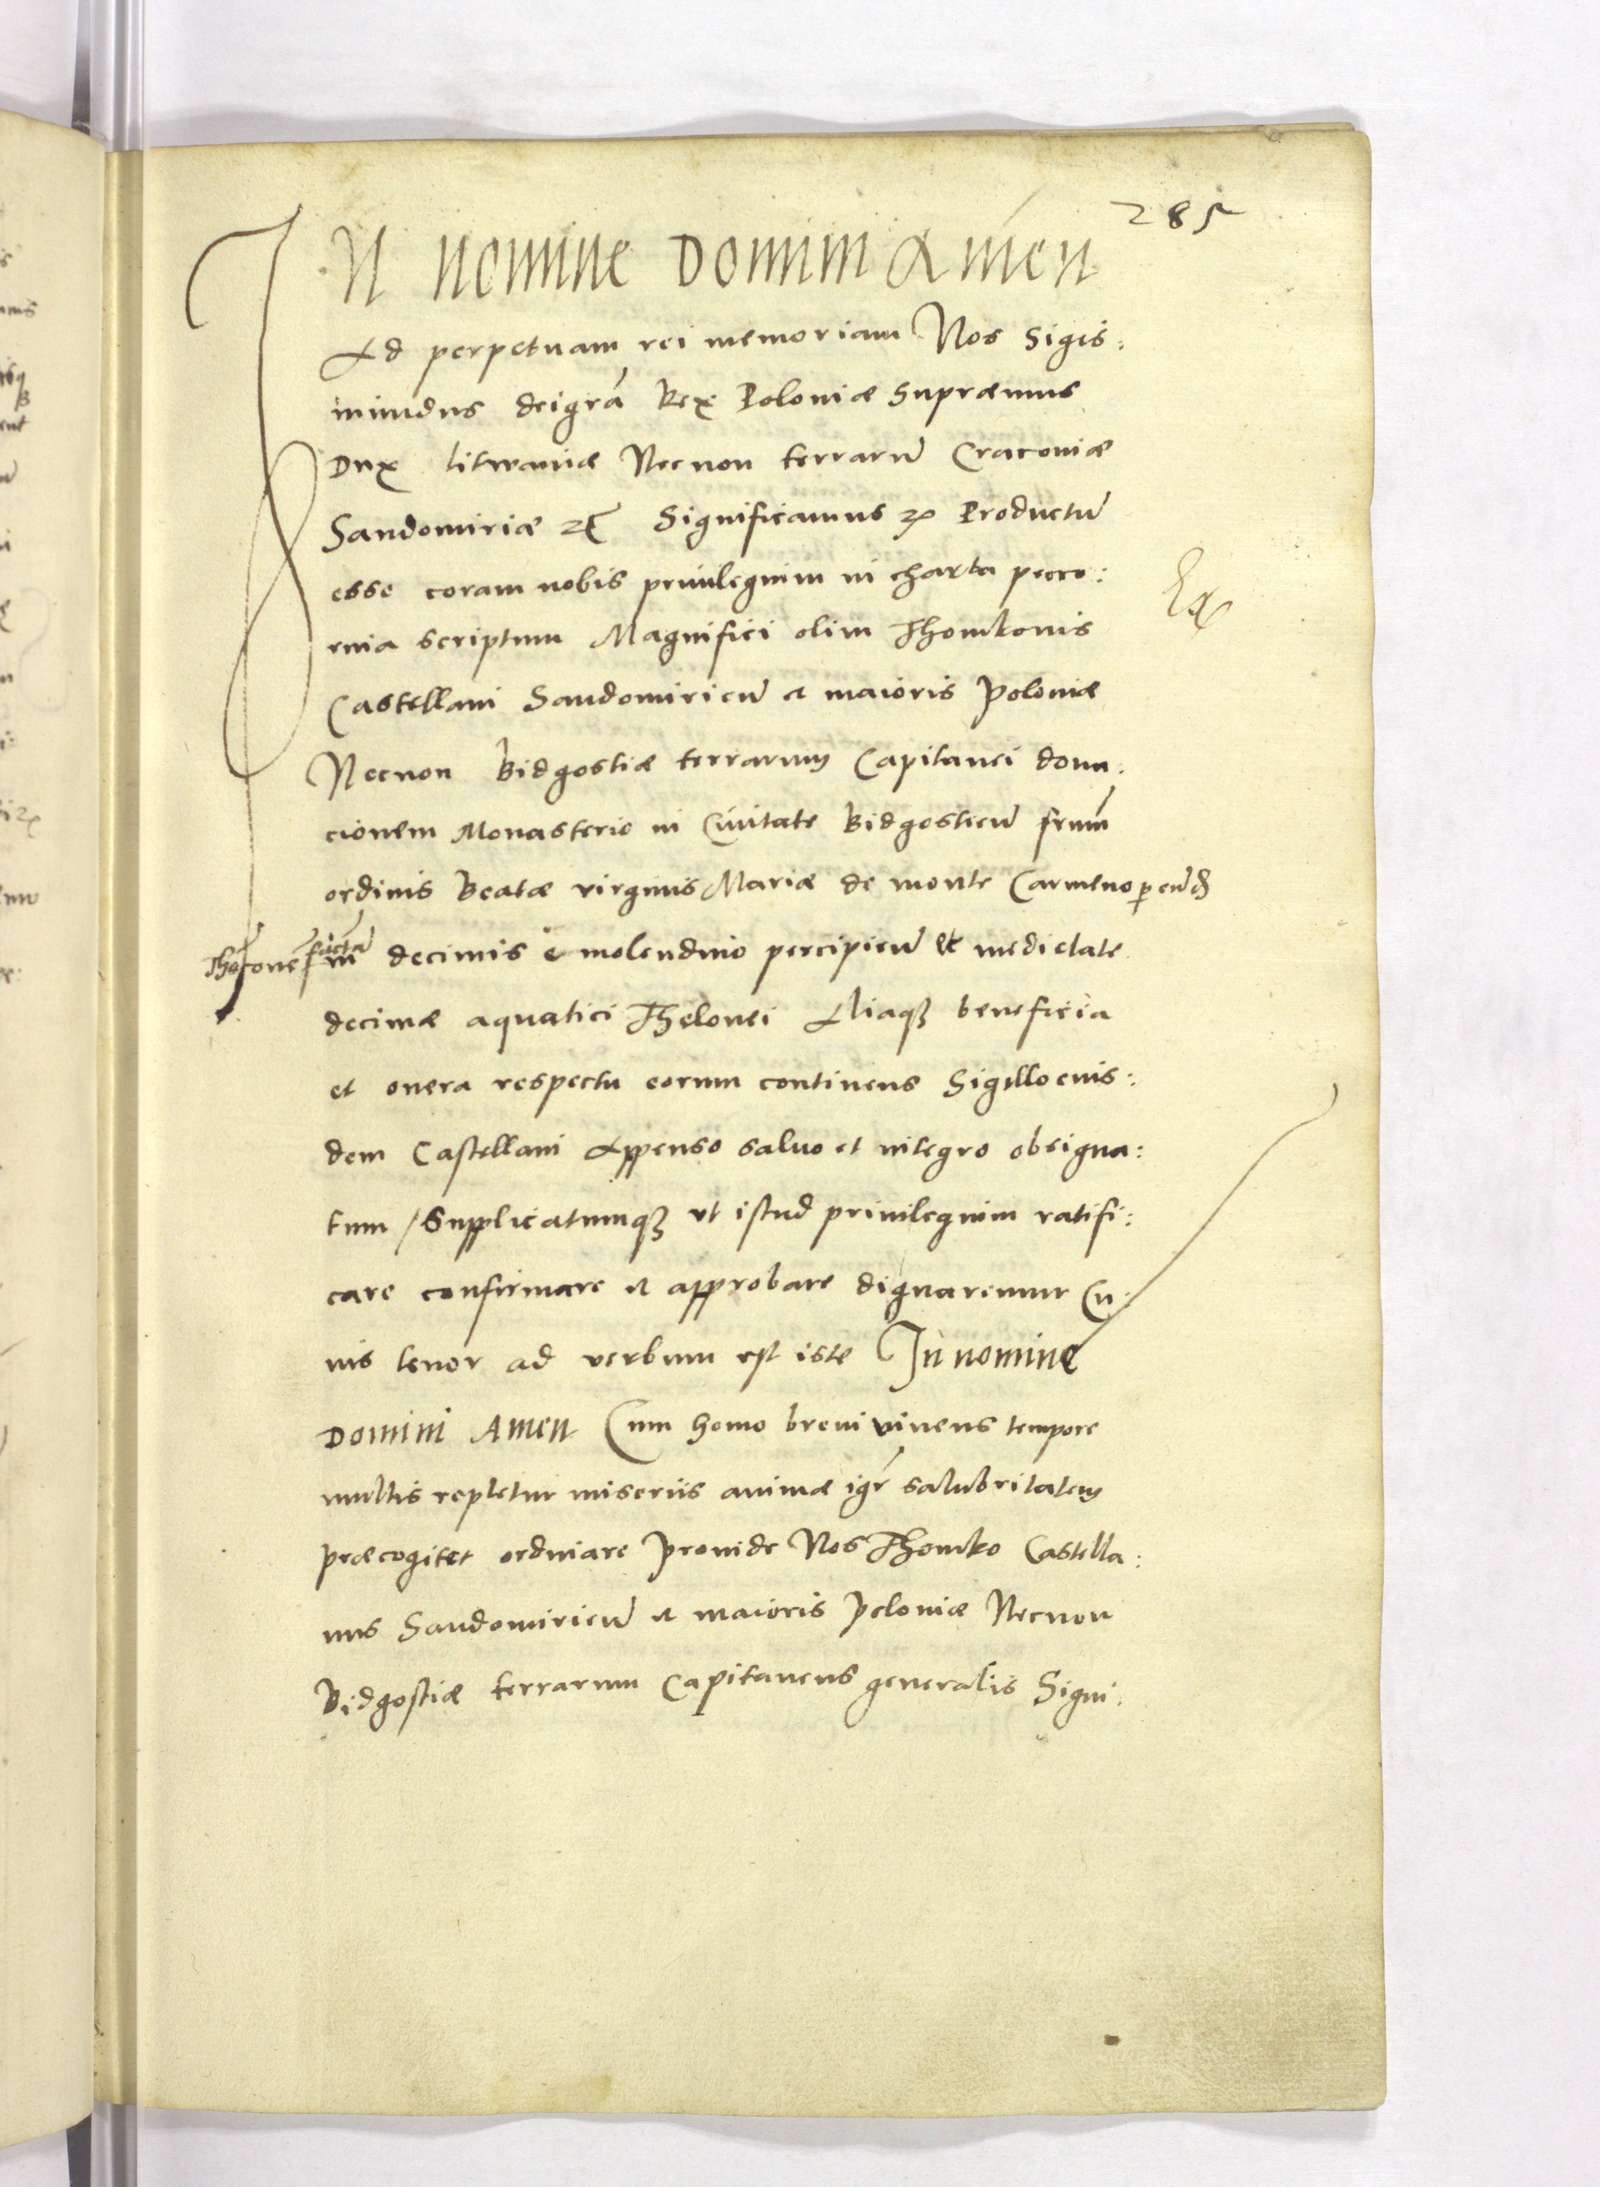 285
IN nomine Domini Amen
Ad perpetuam rei memoriam Nos Sigis:
mundus dei grã Rex Poloniæ Supræmus
Dux Litwaniæ Necnon terrarũ Cracoviæ
Sandomiriæ Significamus Productũ
esse coram nobis privilegium in charta pecco:
rina scriptum Magnifici olim Thomkonis
Castellani Sandomirieñ et maioris Poloniæ
Necnon Bidgostiæ terrarum Capitanei dona:
cionem Monasterio in Civitate Bidgostieñ frum̃
ordinis Beatæ virginis Mariæ de monte Carmeno per eund̃
Thoconẽ factã
in decimis e molendino percipieñ et medietate
decimæ aquatici Thelonei Aliaq3 beneficia
et onera respectu eorum continens Sigillo eius:
dem Castellani Appenso salvo et integro obsigna:
tum / Supplicatumq3 ut istud privilegium ratifi:
care confirmare et approbare dignaremur Cu:
ius tenor ad verbum est iste In nomine
Domini Amen Cum homo brevi vivens tempore
multis repletur miseriis animæ igr̃ salubritatem
præcogitet ordinare Provide Nos Thomko Castella:
nus Sandomirieñ et maioris Poloniæ Necnon
Bidgostiæ terrarum Capitaneus generalis Signi: